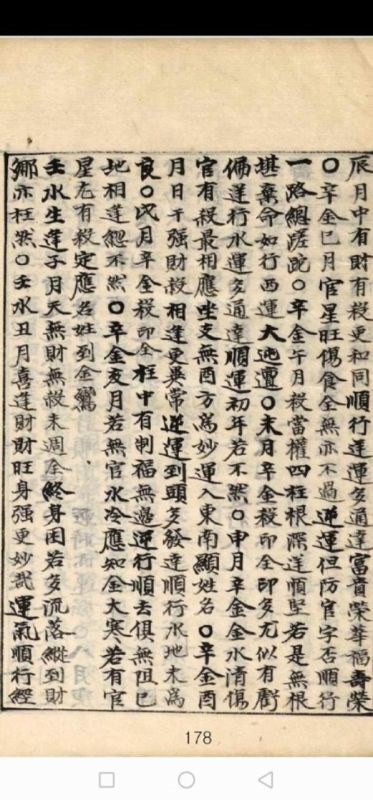 辰月中有財有殺更和同順行逢運多通達富貴榮華福壽榮
○辛金巳月官星旺傷食全無亦不過逆運但防官字否順行
一路總蹉跎○辛金午月殺當權四柱根深逆順堅若是無根
堪棄命如行西運大迍邅○未月辛金殺印全印多尤似有虧
偏逆行水運多通達順運初年若不然○申月辛金金水清傷
官有殺最相應坐支無酉方為妙運入東南顯姓名○辛金酉
月日干强財殺相逢更異常逆運到頭多發達順行水地未為
良○戌月辛金殺印全柱中有制福無邊逆行順去俱無阻巳
地相逢恐不然○辛金亥月若無官水冷應知金大寒若有官
星尤有殺定應名姓到金鸞
壬水生逢子月天無財無殺未周全終身困若多流落縱到財
鄉亦枉然○壬水丑月喜逢財財旺身强更妙哉運氣順行經
178